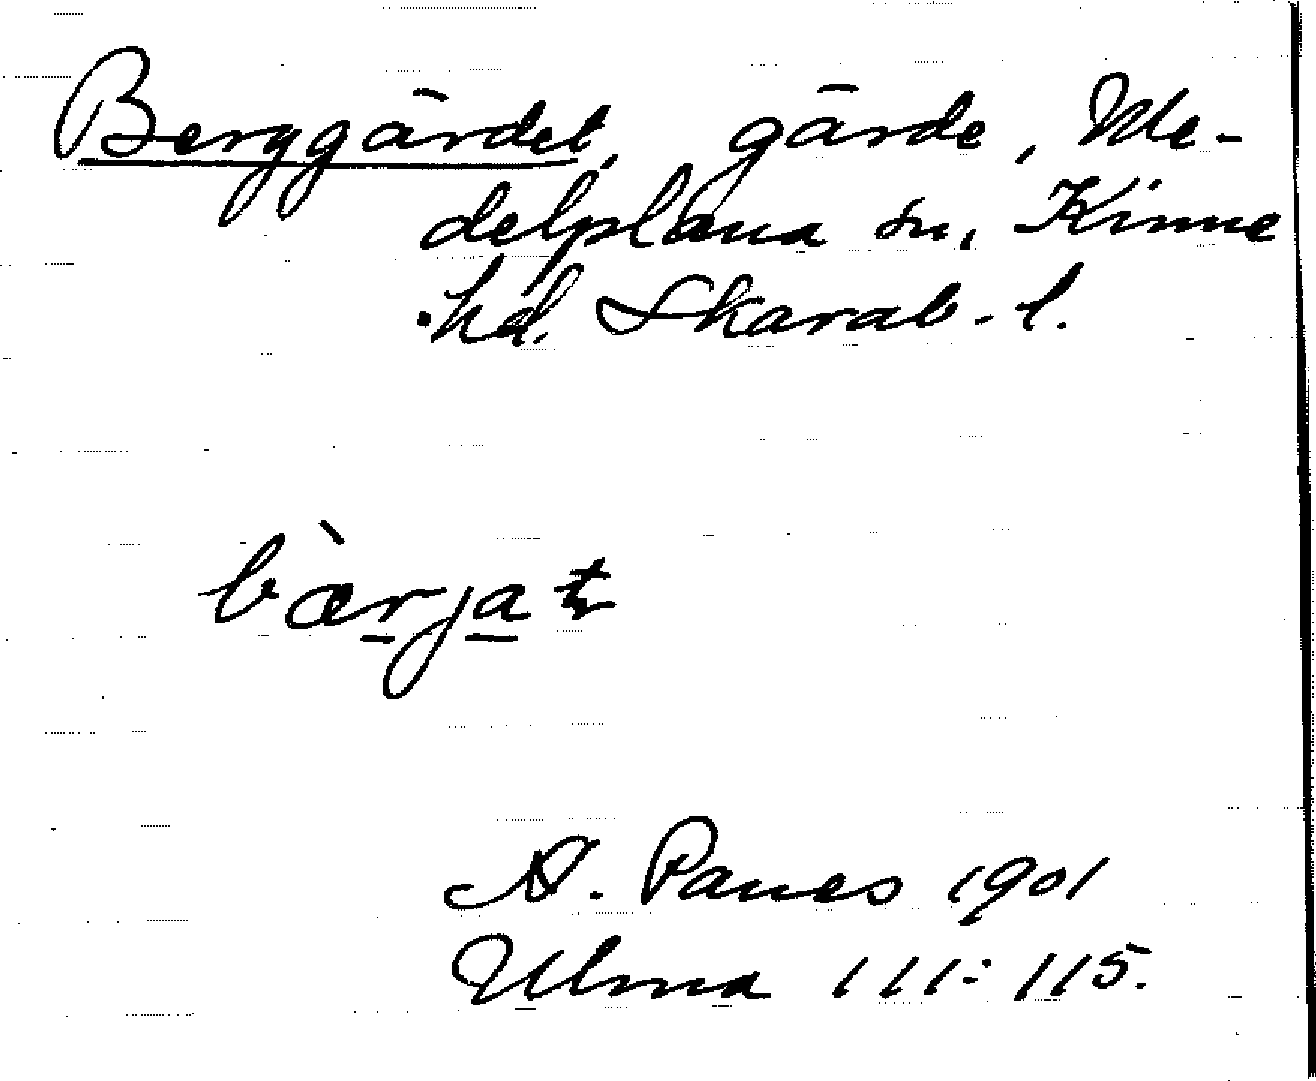 Berggärdet, gärde, Me-
delplana sn, Kinne
hd. Skarab. l.
bàrjat
N. Panes 1901
Ulma 111:115.